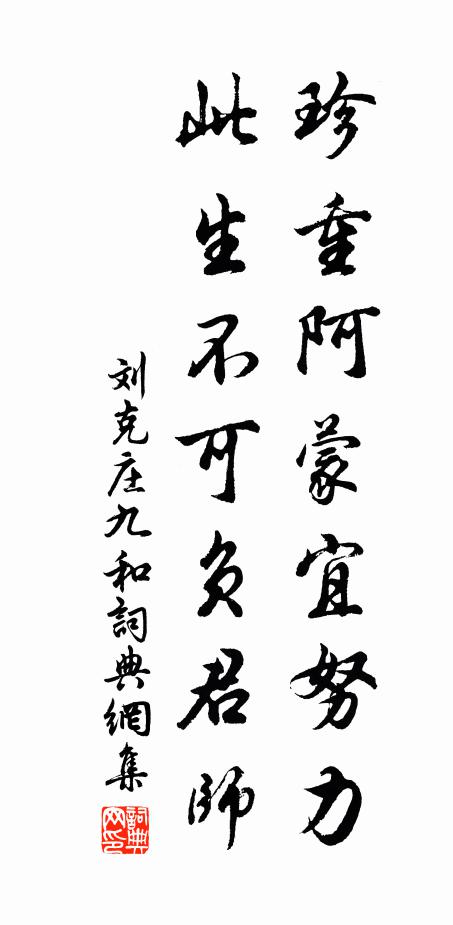 珍重阿蒙宜努力
此生不可负君師
刘克庄九和詞典網集
詞典网印